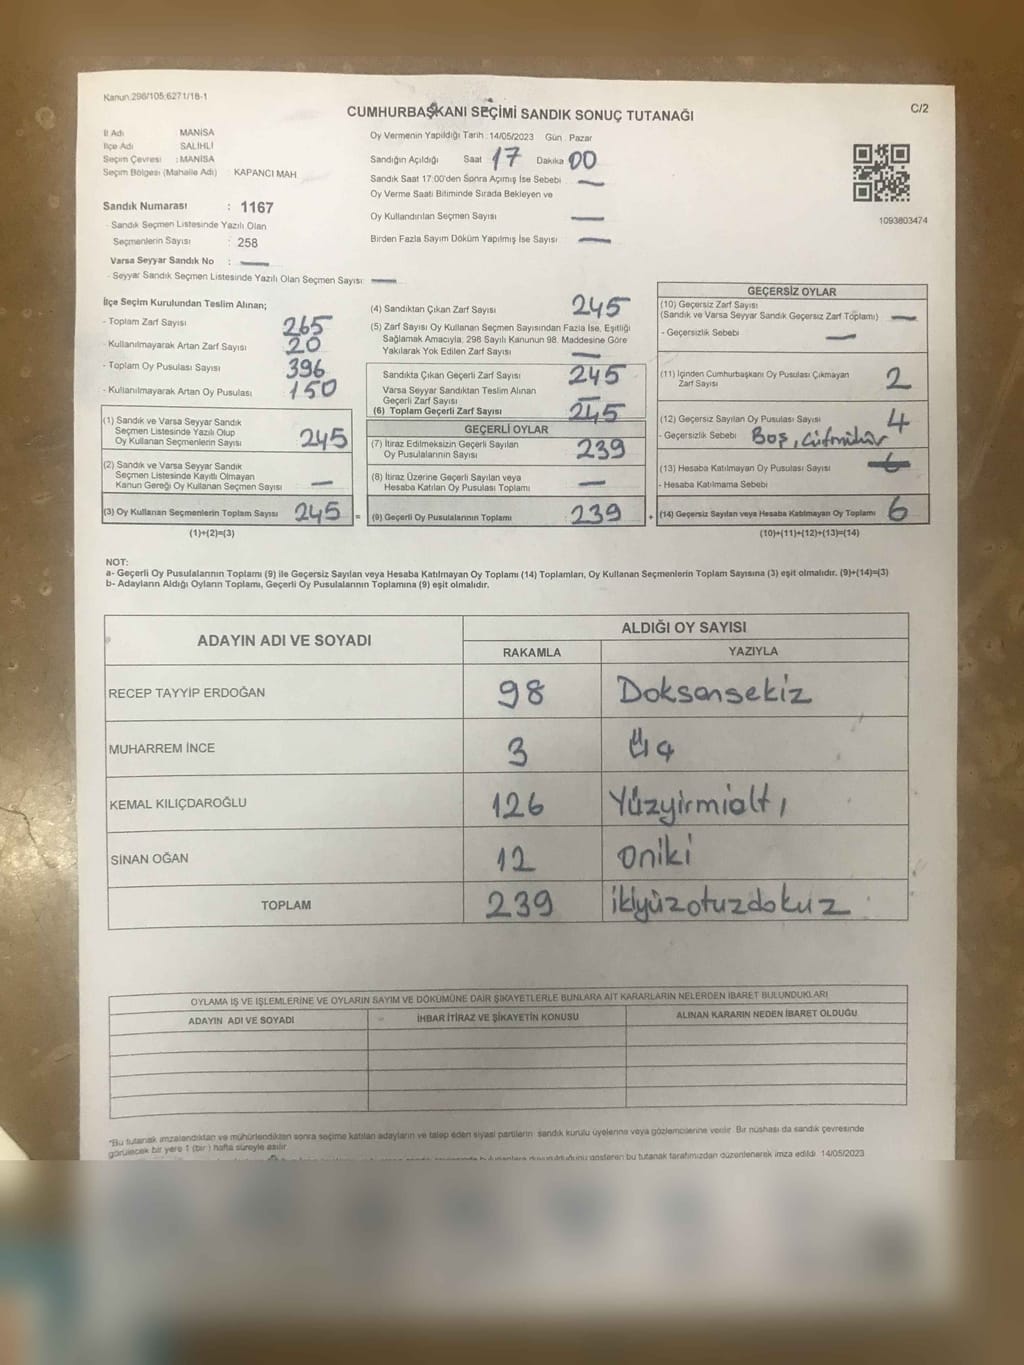 Kanun:298/105;6271/18-1
C/2
CUMHURBAŞKANI SEÇİMİ SANDIK SONUÇ TUTANAĞI
İl Adı MANİSA
İlçe Adı SALİHLİ
Seçim Çevresi : MANİSA
Seçim Bölgesi (Mahalle Adı) : KAPANCI MAH
Oy Vermenin Yapıldığı Tarih : 14/05/2023 Gün : Pazar
Sandığın Açıldığı Saat 17 Dakika 00
Sandık Saat 17:00'den Sonra Açımış İse Sebebi —
Oy Verme Saati Bitiminde Sırada Bekleyen ve
Oy Kullandırılan Seçmen Sayısı —
Birden Fazla Sayım Döküm Yapılmış İse Sayısı —
1093803474
Sandık Numarası : 1167
- Sandık Seçmen Listesinde Yazılı Olan
Seçmenlerin Sayısı : 258
Varsa Seyyar Sandık No : —
- Seyyar Sandık Seçmen Listesinde Yazılı Olan Seçmen Sayısı: —
İlçe Seçim Kurulundan Teslim Alınan;
- Toplam Zarf Sayısı 265
- Kullanılmayarak Artan Zarf Sayısı 20
- Toplam Oy Pusulası Sayısı 396
- Kullanılmayarak Artan Oy Pusulası 150
(1) Sandık ve Varsa Seyyar Sandık
Seçmen Listesinde Yazılı Olup
Oy Kullanan Seçmenlerin Sayısı 245
(2) Sandık ve Varsa Seyyar Sandık
Seçmen Listesinde Kayıtlı Olmayan
Kanun Gereği Oy Kullanan Seçmen Sayısı —
(3) Oy Kullanan Seçmenlerin Toplam Sayısı 245 =
(1)+(2)=(3)
(4) Sandıktan Çıkan Zarf Sayısı 245
(5) Zarf Sayısı Oy Kullanan Seçmen Sayısından Fazla İse, Eşitliği
Sağlamak Amacıyla, 298 Sayılı Kanunun 98. Maddesine Göre
Yakılarak Yok Edilen Zarf Sayısı —
Sandıkta Çıkan Geçerli Zarf Sayısı 245
Varsa Seyyar Sandıktan Teslim Alınan
Geçerli Zarf Sayısı —
(6) Toplam Geçerli Zarf Sayısı 245
GEÇERLİ OYLAR
(7) İtiraz Edilmeksizin Geçerli Sayılan
Oy Pusulalarının Sayısı 239
(8) İtiraz Üzerine Geçerli Sayılan veya
Hesaba Katılan Oy Pusulası Toplamı —
(9) Geçerli Oy Pusulalarının Toplamı 239 +
GEÇERSİZ OYLAR
(10) Geçersiz Zarf Sayısı
(Sandık ve Varsa Seyyar Sandık Geçersiz Zarf Toplamı) —
- Geçersizlik Sebebi —
(11) İçinden Cumhurbaşkanı Oy Pusulası Çıkmayan
Zarf Sayısı 2
(12) Geçersiz Sayılan Oy Pusulası Sayısı 4
- Geçersizlik Sebebi Boş,
(13) Hesaba Katılmayan Oy Pusulası Sayısı
- Hesaba Katılmama Sebebi
(14) Geçersiz Sayılan veya Hesaba Katılmayan Oy Toplamı 6
(10)+(11)+(12)+(13)=(14)
NOT:
a- Geçerli Oy Pusulalarının Toplamı (9) ile Geçersiz Sayılan veya Hesaba Katılmayan Oy Toplamı (14) Toplamları, Oy Kullanan Seçmenlerin Toplam Sayısına (3) eşit olmalıdır. (9)+(14)=(3)
b- Adayların Aldığı Oyların Toplamı, Geçerli Oy Pusulalarının Toplamına (9) eşit olmalıdır.
ADAYIN ADI VE SOYADI
ALDIĞI OY SAYISI
RAKAMLA YAZIYLA
RECEP TAYYİP ERDOĞAN 98 Doksansekiz
MUHARREM İNCE 3 Üç
KEMAL KILIÇDAROĞLU 126 Yüzyirmialtı
SİNAN OĞAN 12 oniki
TOPLAM 239 ikiyüzotuzdokuz
OYLAMA İŞ VE İŞLEMLERİNE VE OYLARIN SAYIM VE DÖKÜMÜNE DAİR ŞİKAYETLERLE BUNLARA AİT KARARLARIN NELERDEN İBARET BULUNDUKLARI
ADAYIN ADI VE SOYADI İHBAR İTİRAZ VE ŞİKAYETİN KONUSU ALINAN KARARIN NEDEN İBARET OLDUĞU
*Bu tutanak imzalandıktan ve mühürlendikten sonra seçime katılan adayların ve talep eden siyasi partilerin sandık kurulu üyelerine veya gözlemcilerine verilir. Bir nüshası da sandık çevresinde
görülecek bir yere 1 (bir) hafta süreyle asılır.
bulunanlara duyurulduğunu gösteren bu tutanak tarafımızdan düzenlenerek imza edildi. 14/05/2023